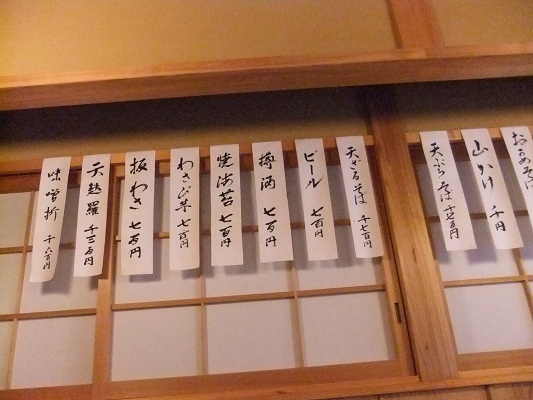 おかめそば
山かけ 千円
天ぷらそば 千七百円
天ざるそば 千七百円
ビール 七百円
樽酒 七百円
焼海苔 七百円
わさび芋 七百円
板わさ 七百円
天麩羅 千三百円
味噌折 千六百円